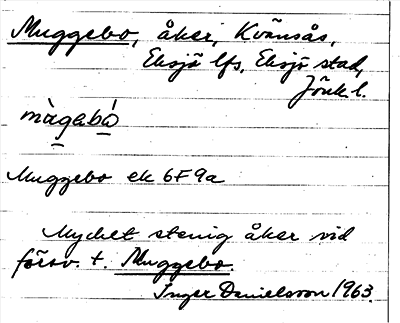 Muggebo, åker, Kvänsås,
Eksjö lfs, Eksjö stad,
Jönk.l.
màgabó
Muggebo ek 6F9a
Mycket stenig åker vid
försv. t. Muggebo.
Inger Danielsson 1963.